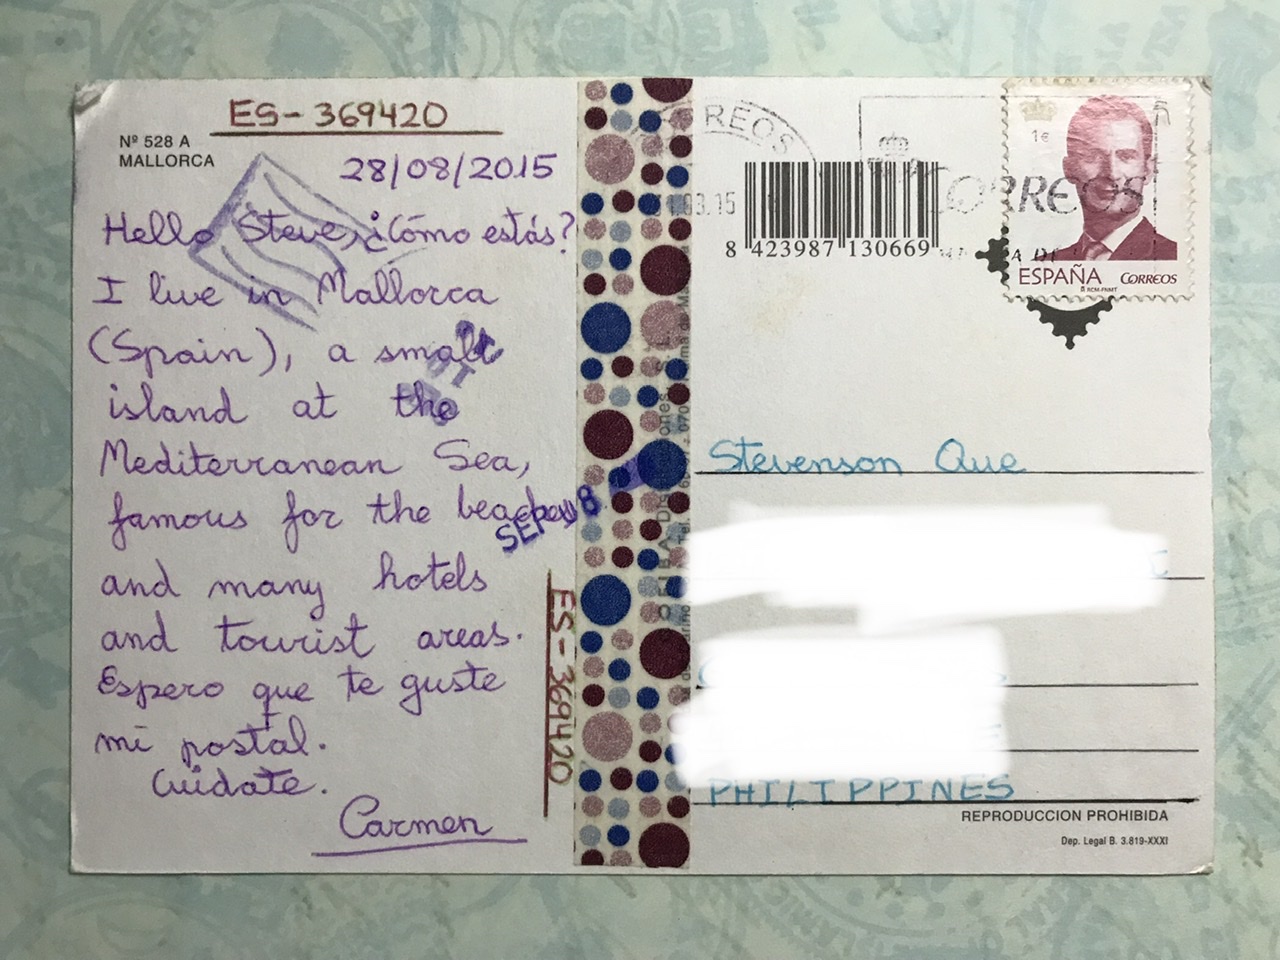 ES-369420
Nº 528 A
MALLORCA
28/08/2015
Hello Steve, ¿Cómo estás?
I live in Mallorca
(Spain), a small
island at the
Mediterranean Sea,
famous for the beaches
and many hotels
and tourist areas.
Espero que te guste
mi postal.
Cuídate.
Carmen
ES-369420
SEP 08
8 423987 130669
CORREOS
1€
ESPAÑA CORREOS
Stevenson Que
PHILIPPINES
REPRODUCCION PROHIBIDA
Dep. Legal B. 3.819-XXXI